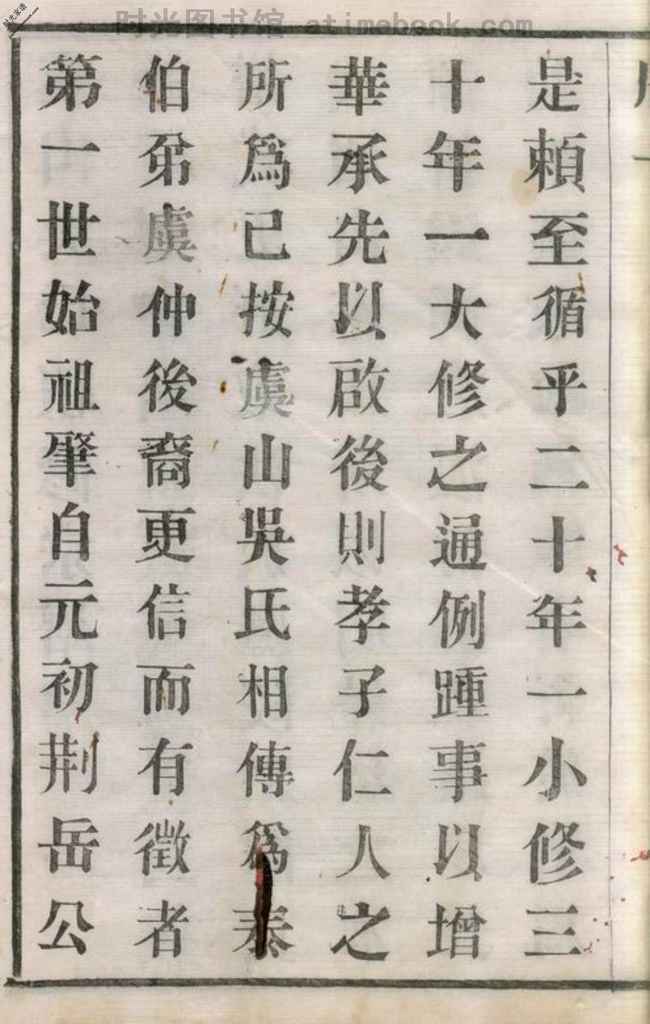 时光图书馆 - atimebook.com
是頼至循乎二十年一小修三
十年一大修之通例踵事以增
華承先以啟後則孝子仁人之
所爲已按虞山吳氏相傳爲泰
伯弟虞仲後裔更信而有徵者
第一世始祖肇自元初荆岳公